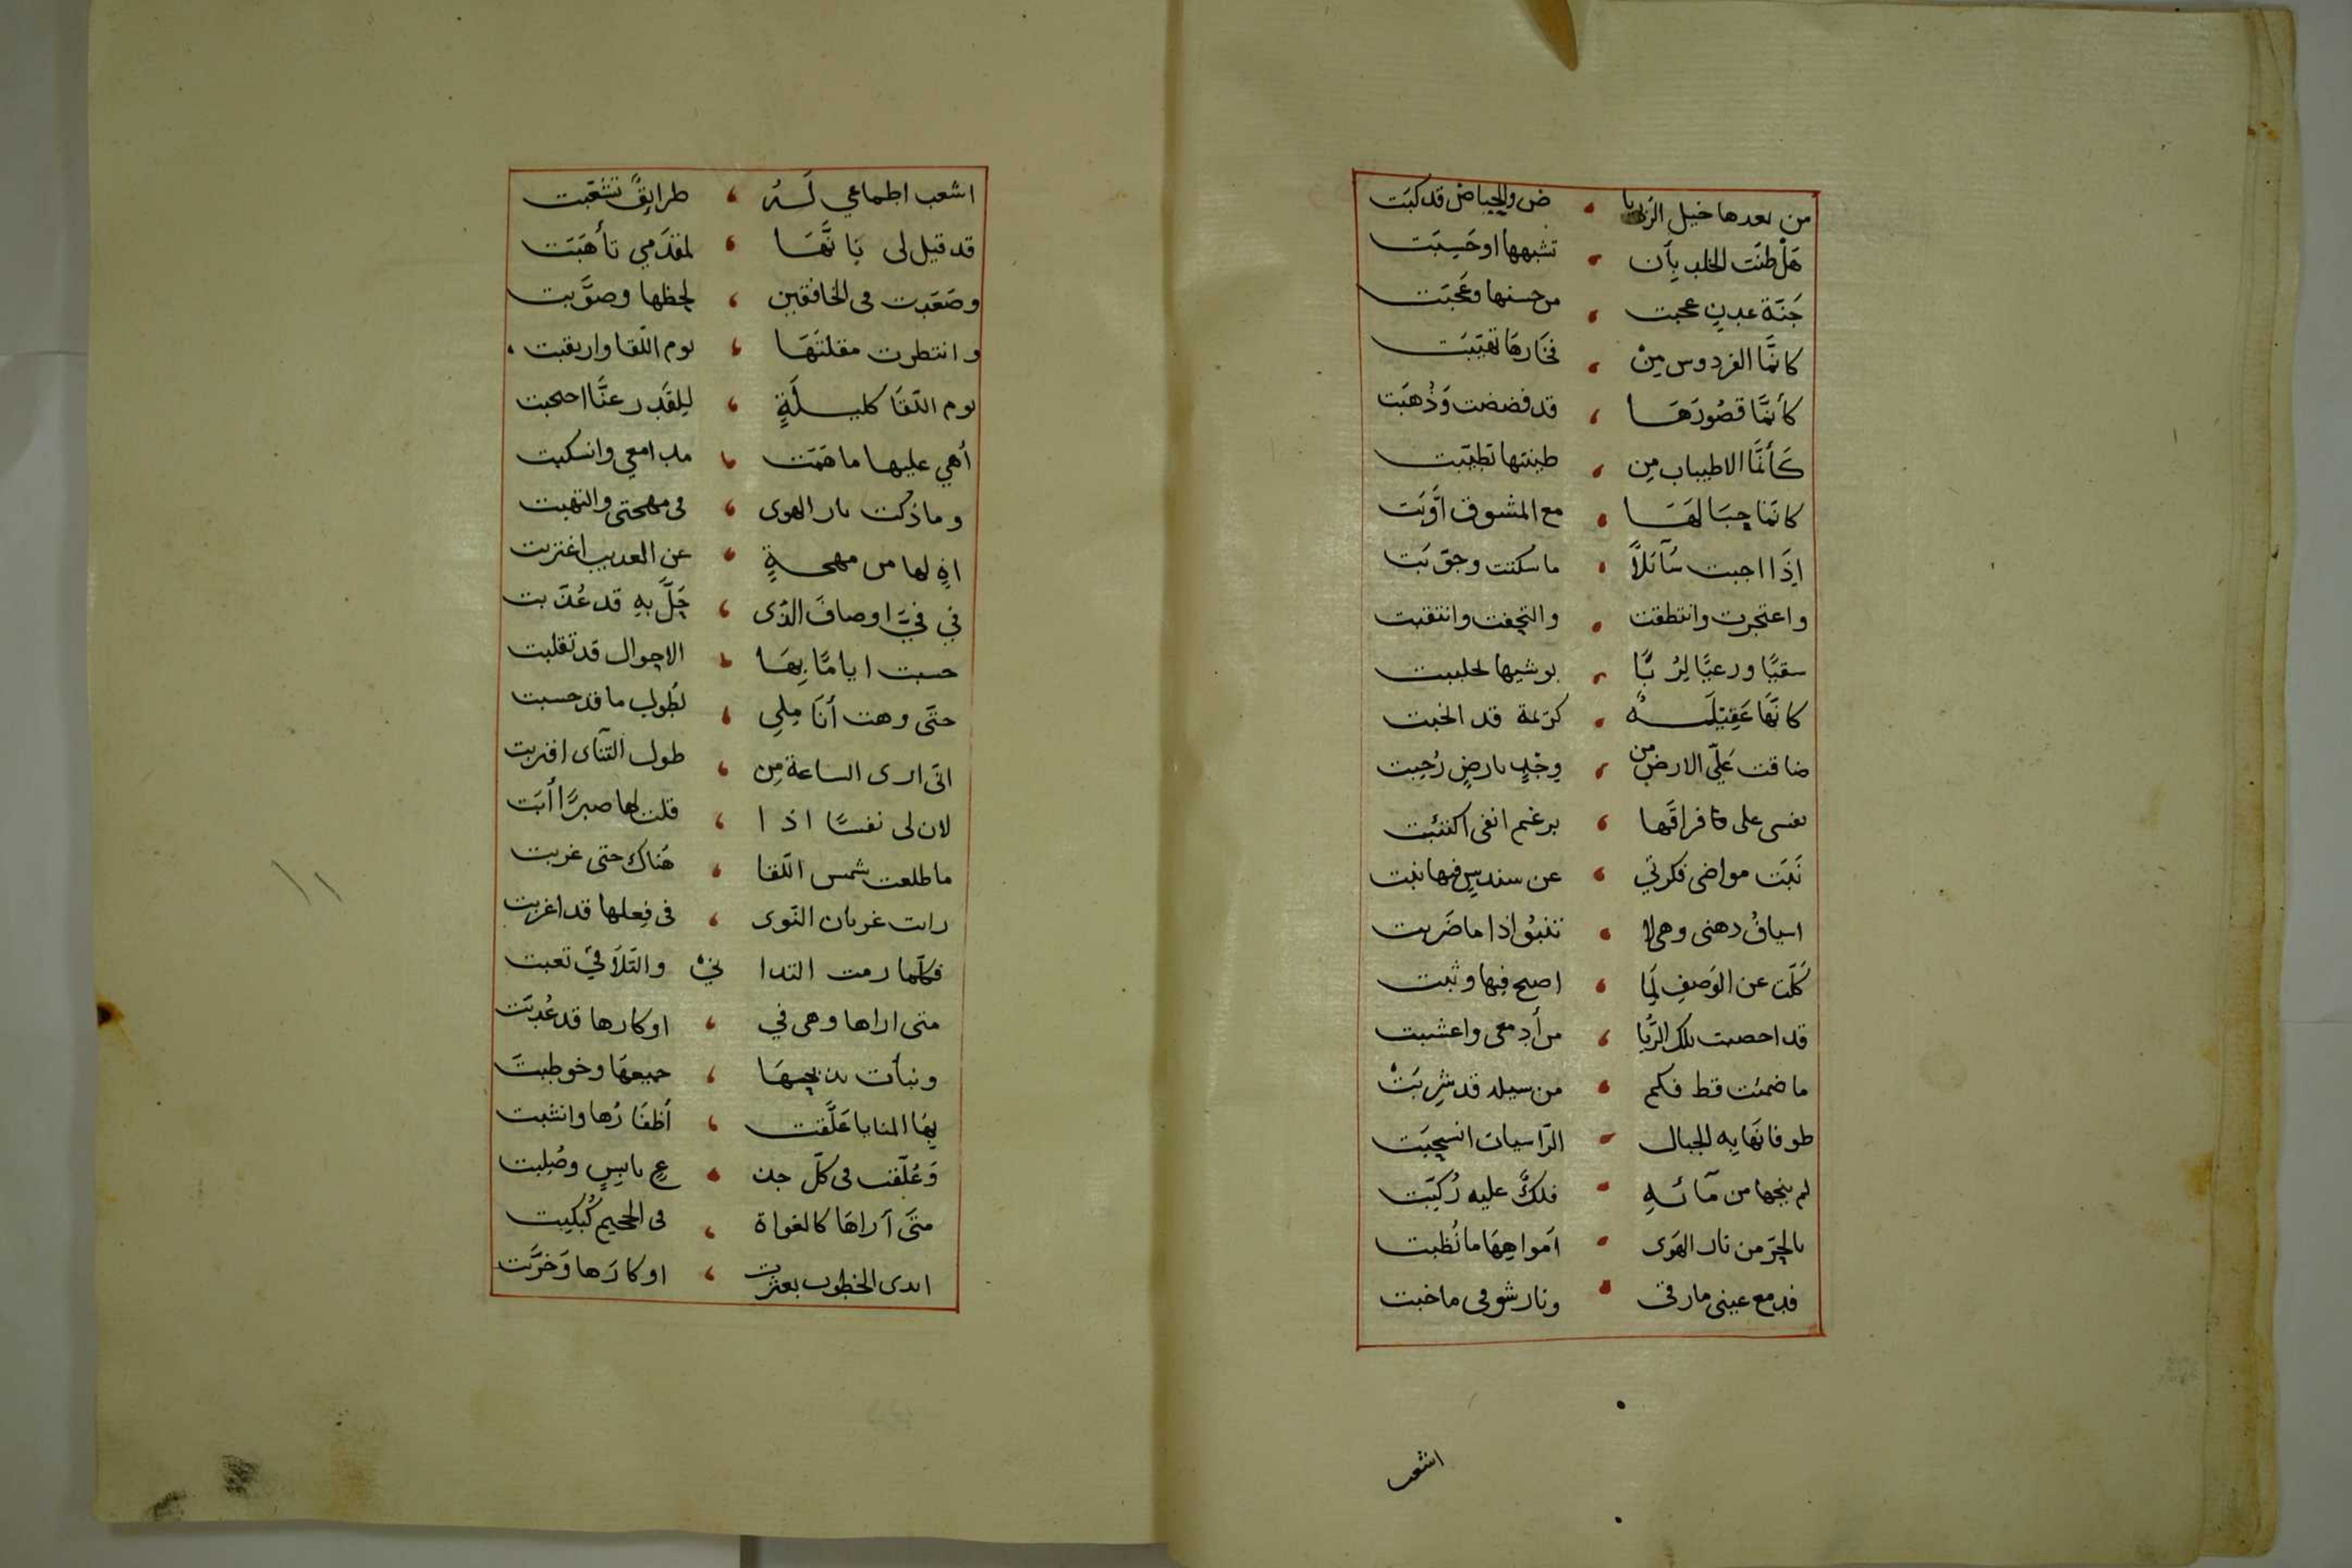 من بعدها خيل الريا ض والحياض قد كبَت
هَل طنَت الخلد بِأَن تشبهها او حَسِبَت
جَنّة عدنٍ عجبت من حسنها وعَجبَت
كانمَّا الفردوس مِنْ تغيّبَت
كأنمَّا قصُورَهَا قد فضضت وَذُهبَت
كَأنمَّا الاطيباب مِن طينتها تطيّبت
كانمّا جبَالهَا مع المشوق أوّبَت
اِذَا اجبت سَآئلاً ما سكنت وجوّبَت
واعتجرت وانتطقت والتحفت وانتقبت
سقيًا ورعيًا لِرُبًا بوشيها تجلببت
كانَّهَا عَقِيْلَةٌ كريمة قد انجبت
ضاقت عَليّ الارض من وجْدٍ بارضٍ رُحِبت
نفسى على فراقَها برغم انفى اكتئبت
نَبَت مواضى فكرتي عن سندسٍ فيها نبت
اسيافُ دهنى وهى لا تنبوُ اذا ما ضَربت
كَلّت عن الوَصفِ لِمَا اصبح فيها وثبت
قد اخصبت تلك الرُّبا من أدمعى واعشبت
ما ضمئت قط فكم من سيله قد شرِبَتْ
طوفانهَا بِه الجبال الرّاسيات انسحبَت
لم ينجها من مآئهِ فلكٌ عليه رُكِبَت
بالجرّ من نار الهَوى اَمواهِهَا ما نُظبت
فدمع عينى ما رقى ونار شوقى ما خبت
اشعب
اشعب اطماعي لَهُ طرايقٌ تشعّبت
قد قيل لى بَانَّهَا لمقدَمي تأهَبَت
وصَعّدت فى الخافقين لحظها وصوَّبت
وانتظرت مقلتَهَا يوم اللّقا وارتقبت
يوم اللّقَا كليلَةٍ لِلقَدر عنَّا احتجبت
أهي عليها ما هَمَت مدامعي وانسكبت
وما ذكت نار الهوى فى مهجتى والتهبت
اهٍ لها من مهجةٍ عن العديب اغتربت
في فيَّ اوصافَ الذّى جَلَّ بِهِ قد عُذّبت
حسبت ايامًا بِهَا الاحوال قد تقلبت
حتَّى وهت أنَامِلِي لطُولِ ما قد حسبت
انّى ارى الساعة مِن طول التنآى اقتربت
لان لى نفسًا اذا قلت لها صبرًا أبَت
ما طلعت شمس اللّقا هُناك حتى غربت
رات غربان النّوى فى فِعلها قد اغربت
فكلّما رمت التدا ني والتّلاَفي تعبت
متى اراها وهى في اوكارها قد عُذبَت
ونبأت جميعهَا وخوطبت
بِهَا المنايا عَلَّقت أظفَارُها وانشبت
وَعُلّقت فى كلّ جذ عٍ يابِسٍ وصُلبت
متَى آراهَا كالغواة فى الجحيم كُبكِبت
ايدى الخطوب بعثرت اوكارَها وَخرَّبت
١١